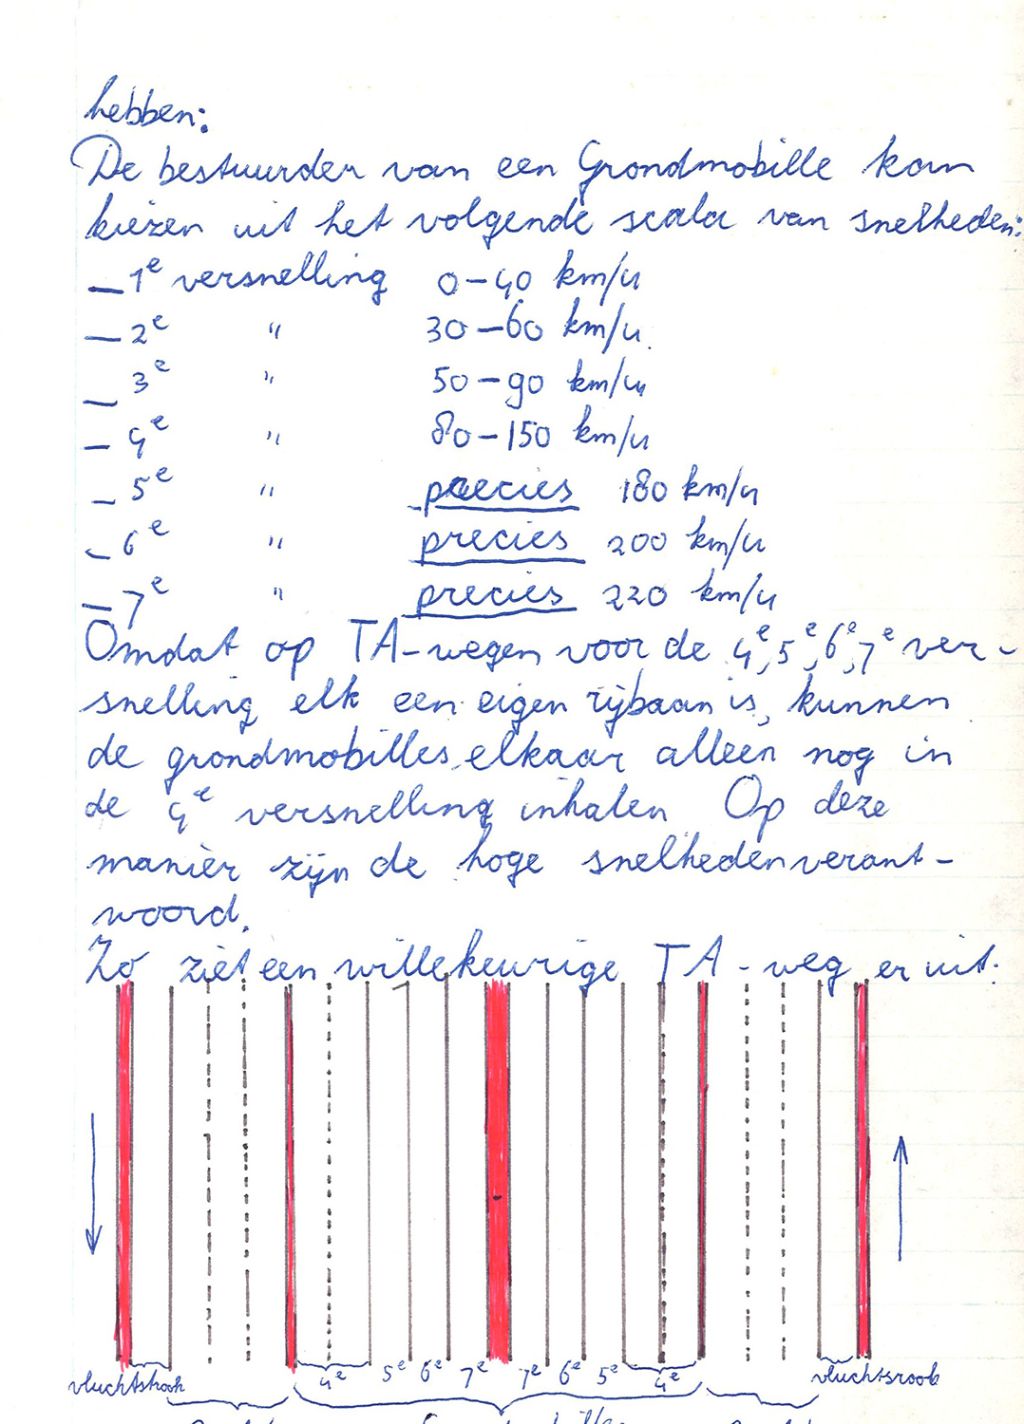 hebben:
De bestuurder van een Grondmobille kan
kiezen uit het volgende scala van snelheden:
— 1e versnelling 0–40 km/u
— 2e " 30–60 km/u
— 3e " 50–90 km/u
— 4e " 80–150 km/u
— 5e " precies 180 km/u
— 6e " precies 200 km/u
— 7e " precies 220 km/u
Omdat op TA-wegen voor de 4e, 5e, 6e, 7e ver-
snelling elk een eigen rijbaan is, kunnen
de grondmobilles elkaar alleen nog in
de 4e versnelling inhalen Op deze
manier zijn de hoge snelheden verant-
woord.
Zo ziet een willekeurige TA-weg er uit:
4e 5e 6e 7e 7e 6e 5e 4e